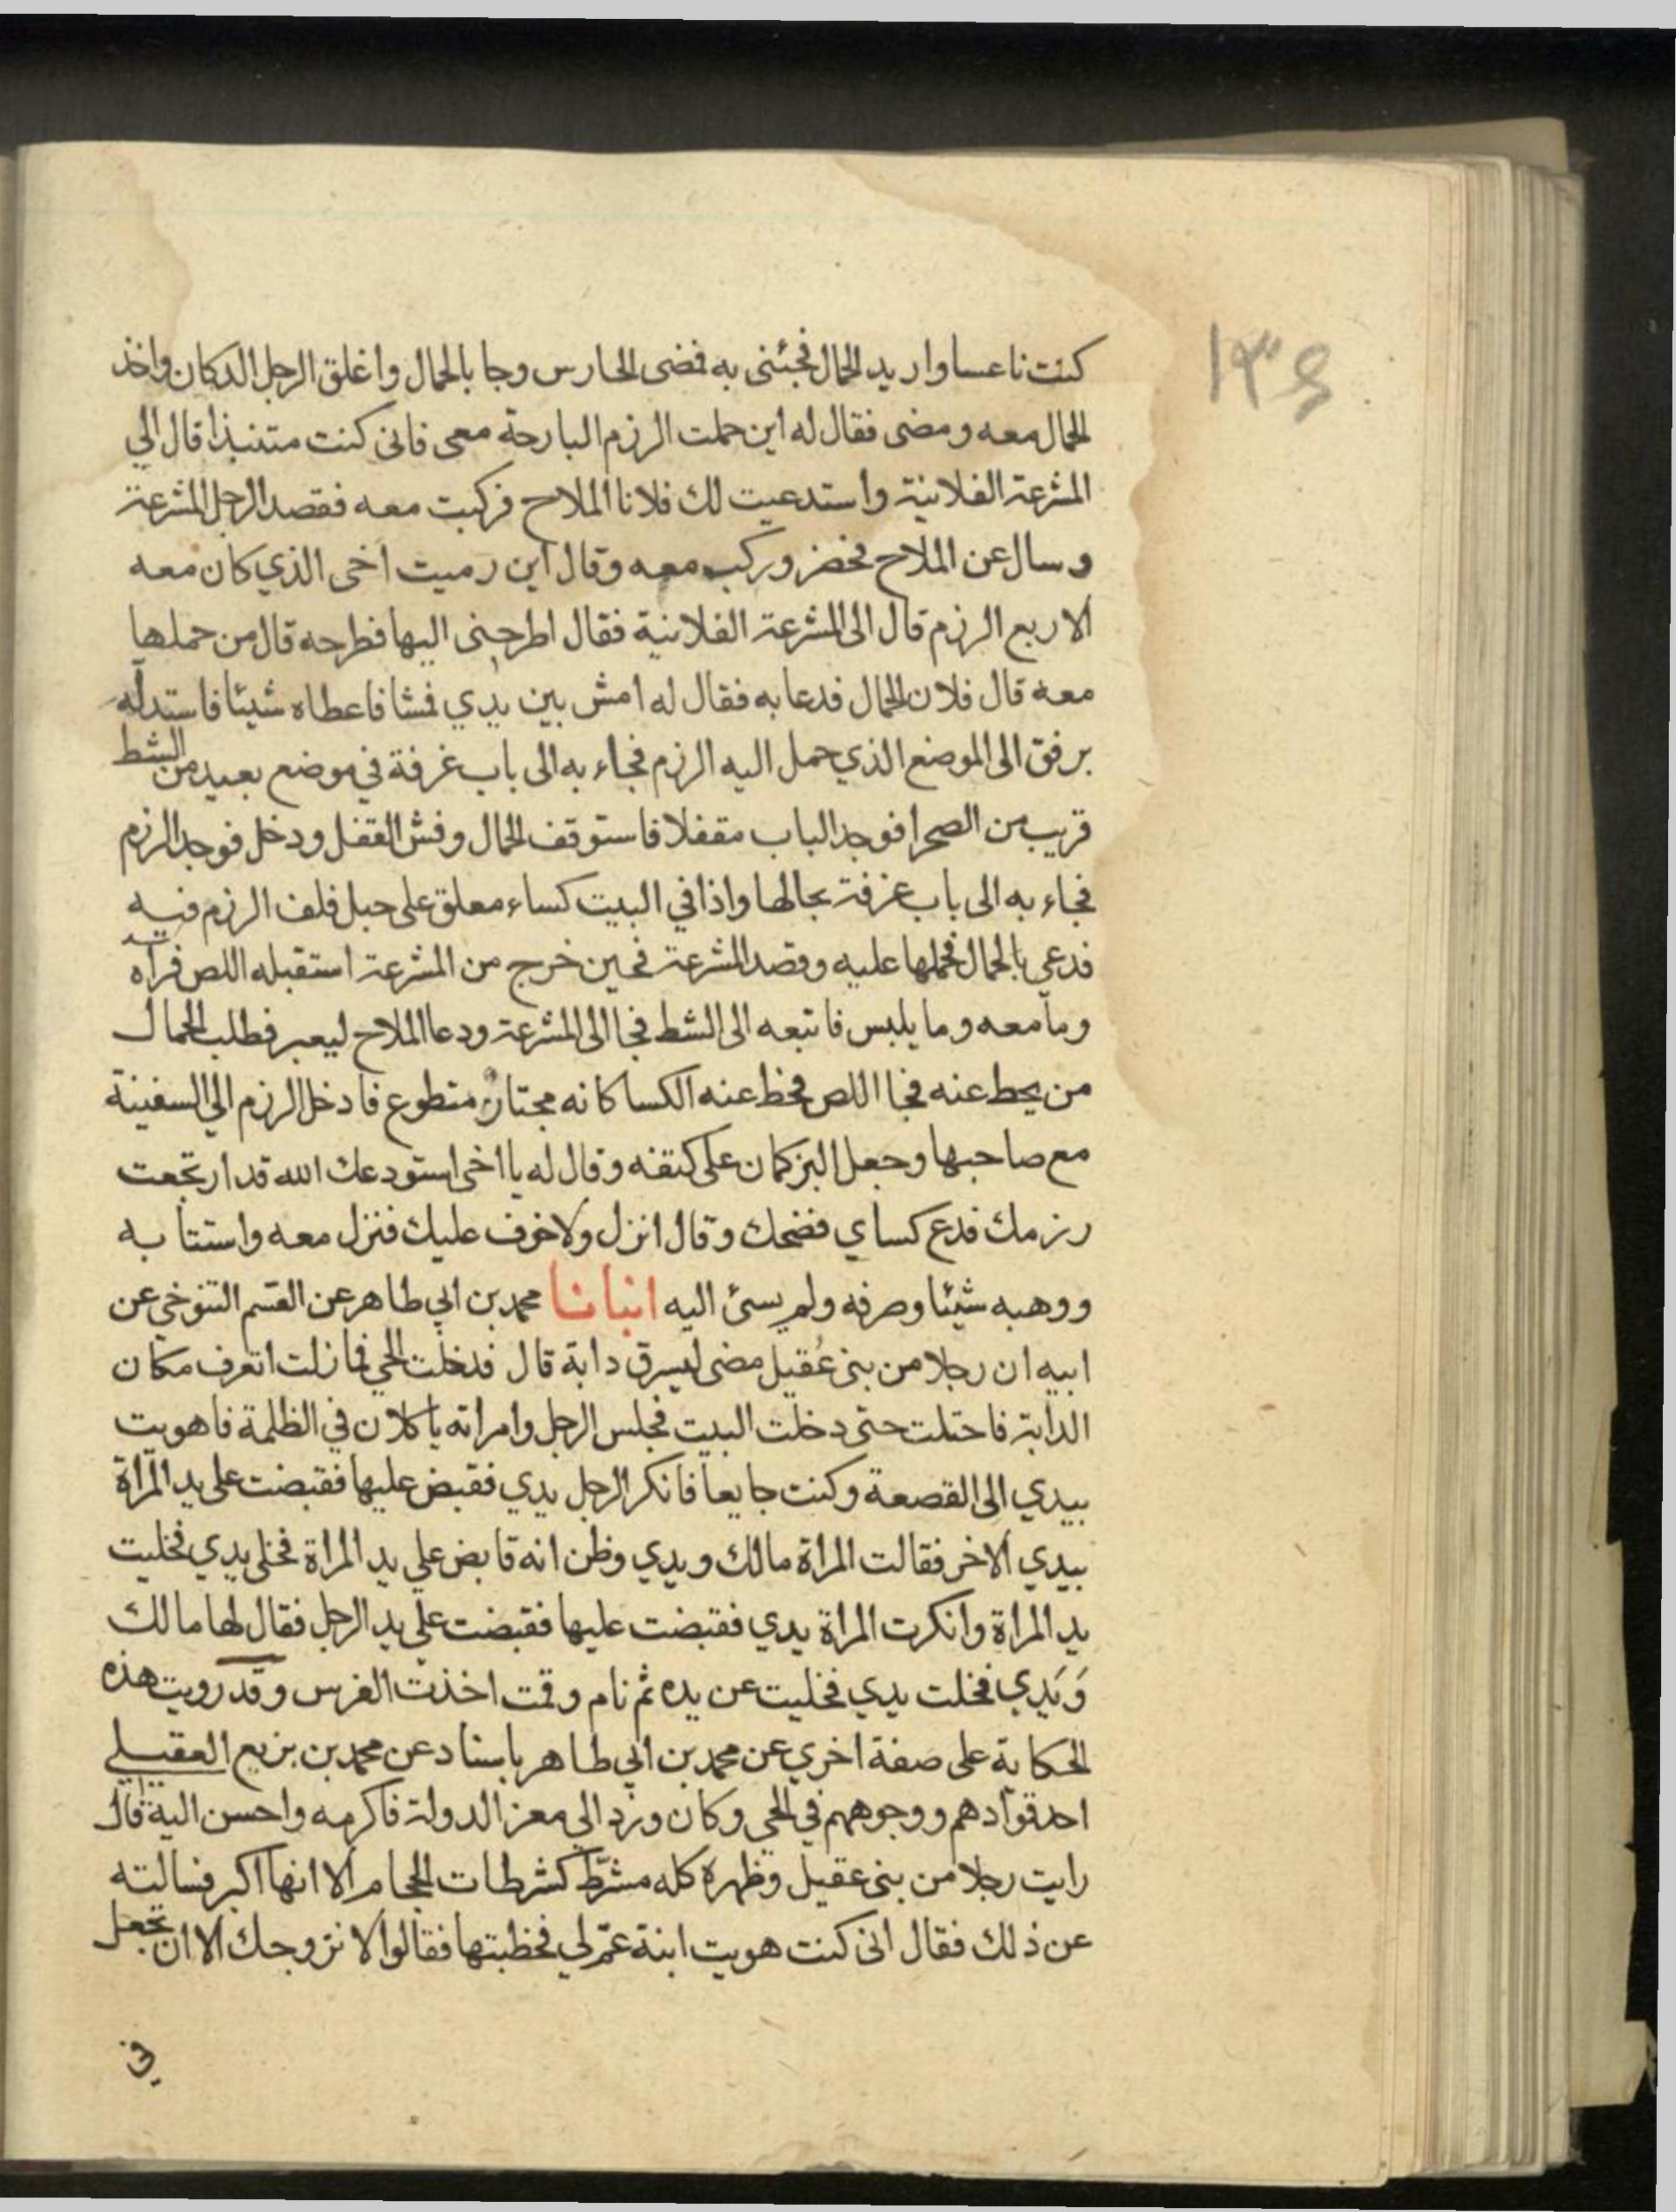 ١٣٤
كنت ناعسا واريد الحمال فجئنى به فمضى الحارس وجا بالحمال واغلق الرجل الدكان واخذ
الحمال معه ومضى فقال له اين حملت الرزم البارحة معى فانى كنت متنبذا قال الي
المشرعة الفلانية واستدعيت لك فلانا الملاح فركبت معه فقصد الرجل المشرعة
وسال عن الملاح فحضر وركب معه وقال اين رميت اخى الذي كان معه
الاربع الرزم قال الى المشرعة الفلانية فقال اطرحنى اليها فطرحه قال من حملها
معه قال فلان الحمال فدعا به فقال له امش بين يدي فمشا فاعطاه شيئا فاستدله
برفق الى الموضع الذي حمل اليه الرزم فجاء به الى باب غرفة في موضع بعيد من الشط
قريب من الصحرا فوجد الباب مقفلا فاستوقف الحمال وفش القفل ودخل فوجد الرزم
فجاء به الى باب غرفة بحالها واذا في البيت كساء معلق على حبل فلف الرزم فيه
فدعي بالحمال فحملها عليه وقصد المشرعة فحين خرج من المشرعة استقبله اللص فرآه
وما معه وما يلبس فاتبعه الى الشط فجا الى المشرعة ودعا الملاح ليعبر فطلب الحمال
من يحط عنه فجا اللص فحط عنه الكسا كانه مجتاز متطوع فادخل الرزم الي السفينة
مع صاحبها وجعل البركان على كتفه وقال له يا اخى استودعك الله قد ارتجعت
رزمك فدع كساي فضحك وقال انزل ولا خوف عليك فنزل معه واستتابه
ووهبه شيئا وصرفه ولم يسئ اليه انبانا محمد بن ابي طاهر عن القسم التنوخي عن
ابيه ان رجلا من بنى عُقيل مضى ليسرق دابة قال فدخلت الحي فما زلت اتعرف مكان
الدابة فاحتلت حتى دخلت البيت فجلس الرجل وامراته ياكلان في الظلمة فاهويت
بيدي الى القصعة وكنت جايعا فانكر الرجل يدي فقبض عليها فقبضت على يد المرآة
بيدي الاخر فقالت المراة مالك ويدي وظن انه قابض علي يد المراة فخلى يدي فخليت
يد المراة وانكرت المراة يدي فقبضت عليها فقبضت علي يد الرجل فقال لها مالك
وَيَدي فخلت يدي فخليت عن يده ثم نام وقمت اخذت الفرس وقد رويت هذه
الحكاية على صفة اخري عن محمد بن ابي طاهر باسناد عن محمد بن بزيع العقيلي
احد قوادهم ووجوههم في الحي وكان ورد الي معز الدولة فاكرمه واحسن اليه قال
رايت رجلا من بنى عقيل وظهره كله مشرّط كشرطات الحجام الا انها اكبر فسالته
عن ذلك فقال انى كنت هويت ابنة عمّ لي فخطبتها فقالوا لا نزوجك الا ان تجعل
في